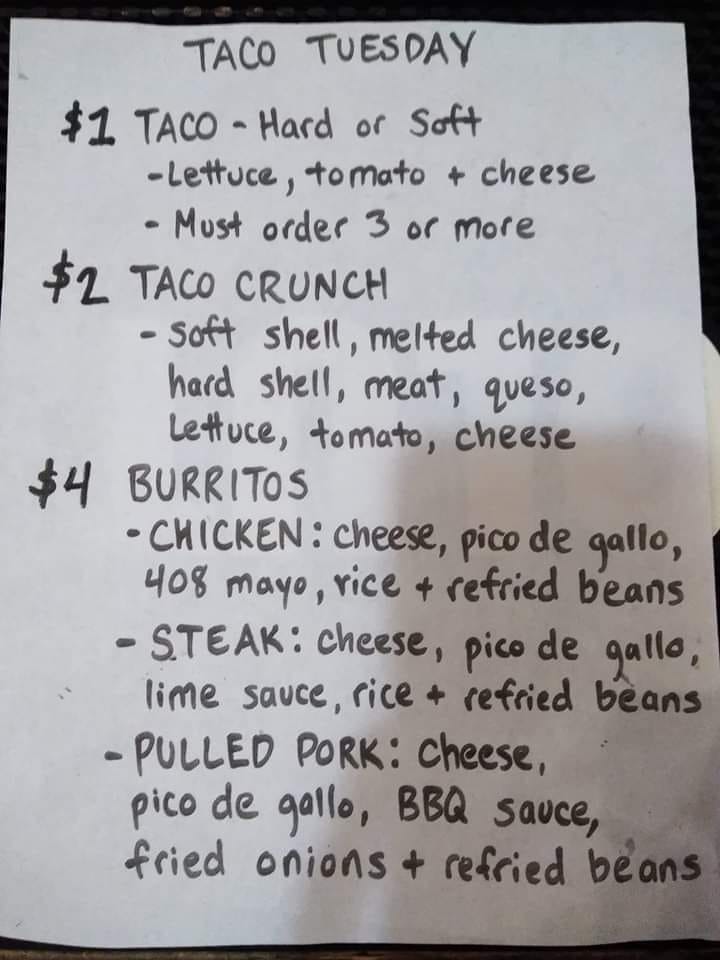 TACO TUESDAY
$1 TACO - Hard or Soft
- Lettuce, tomato + cheese
- Must order 3 or more
$2 TACO CRUNCH
- Soft shell, melted cheese,
hard shell, meat, queso,
Lettuce, tomato, cheese
$4 BURRITOS
- CHICKEN: cheese, pico de gallo,
408 mayo, rice + refried beans
- STEAK: cheese, pico de gallo,
lime sauce, rice + refried beans
- PULLED PORK: cheese,
pico de gallo, BBQ sauce,
fried onions + refried beans